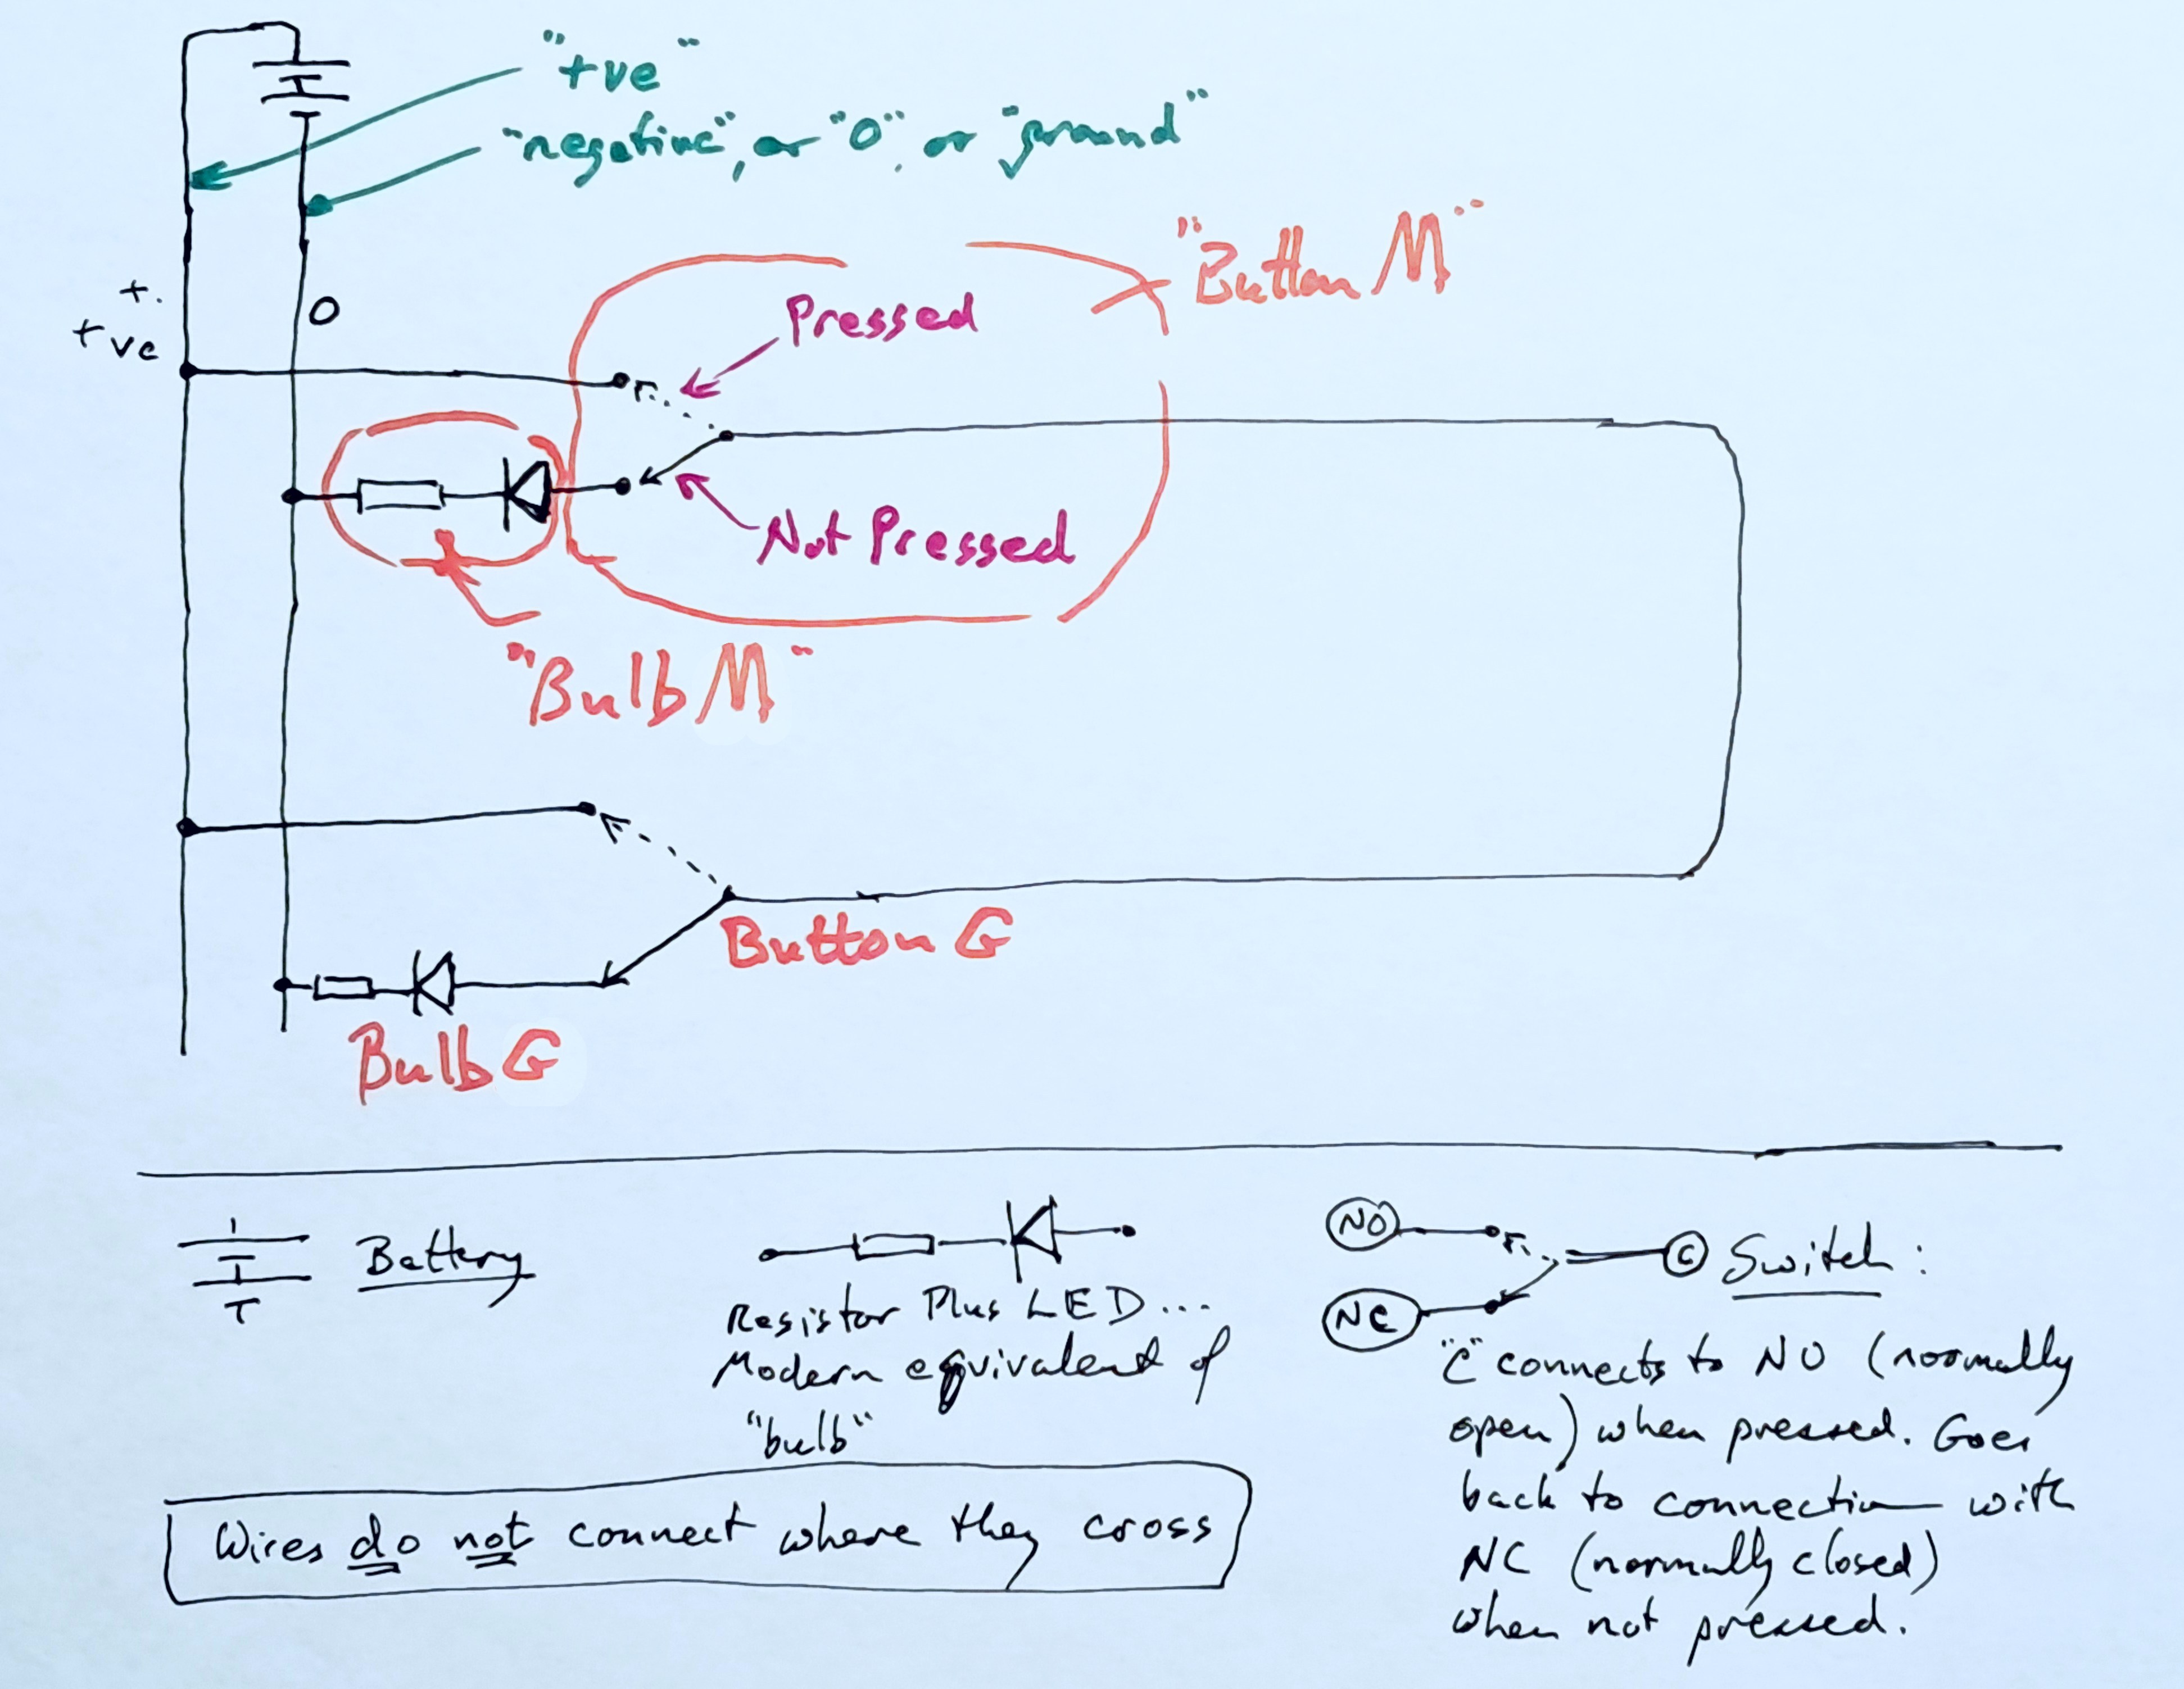 "+ve"
"negative", or "0", or "ground"
"Button M"
+.
+ve
0
Pressed
Not Pressed
"Bulb M"
Button G
Bulb G
Battery
Resistor Plus LED...
Modern equivalent of
"bulb"
NO
NC
C
Switch:
"C" connects to NO (normally
open) when pressed. Goes
back to connection with
NC (normally closed)
when not pressed.
Wires do not connect where they cross